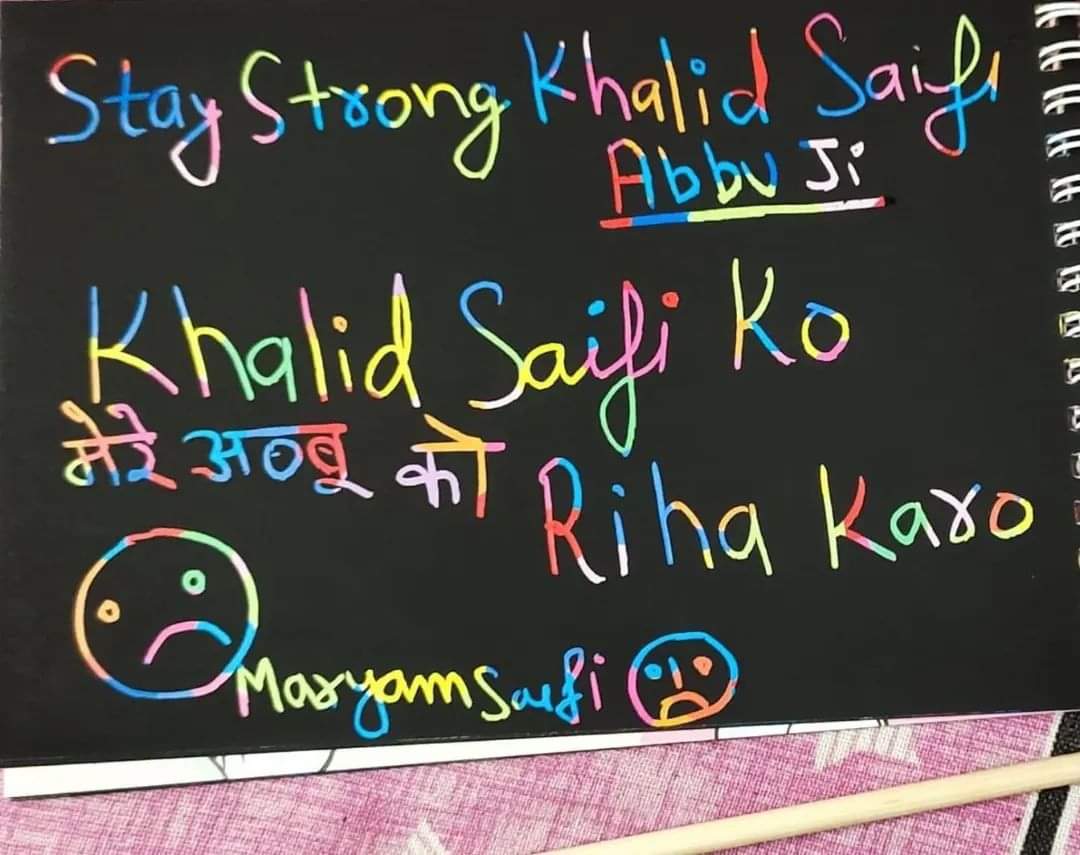 Stay Strong Khalid Saifi
Abbu Ji
Khalid Saifi Ko
मेरे अब्बू को
Riha Karo
Maryam Saifi